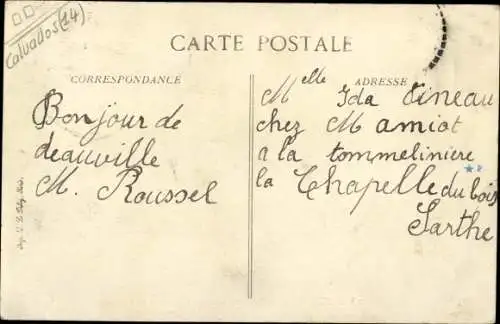 Calvados (14)
CARTE POSTALE
CORRESPONDANCE
ADRESSE
Bonjour de
deauville
M. Roussel
Melle Ida Gineau
chez M amiot
a la tommeliniere
la Chapelle du bois
Sarthe